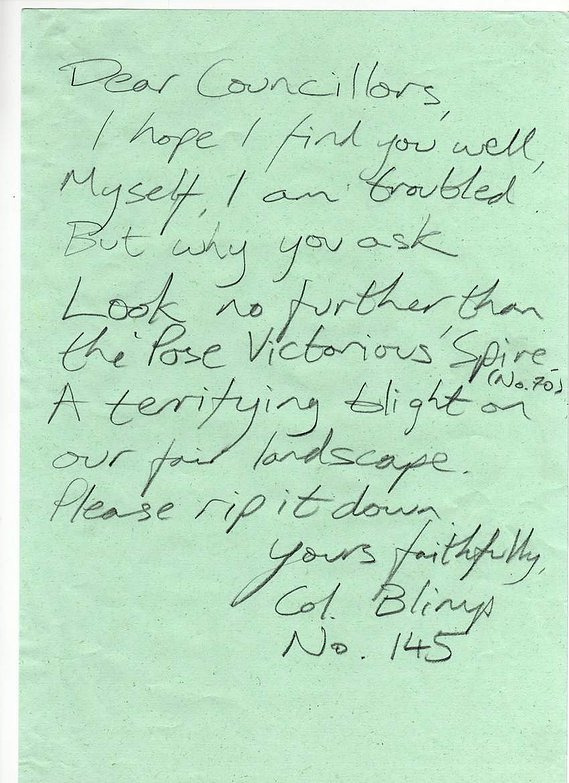 Dear Councillors,
I hope I find you well,
Myself, I am troubled
But why you ask
Look no further than
the 'Pose Victorious' Spire
(No. 70)
A terrifying blight on
our fair landscape.
Please rip it down
Yours faithfully,
Col. Blimp
No. 145